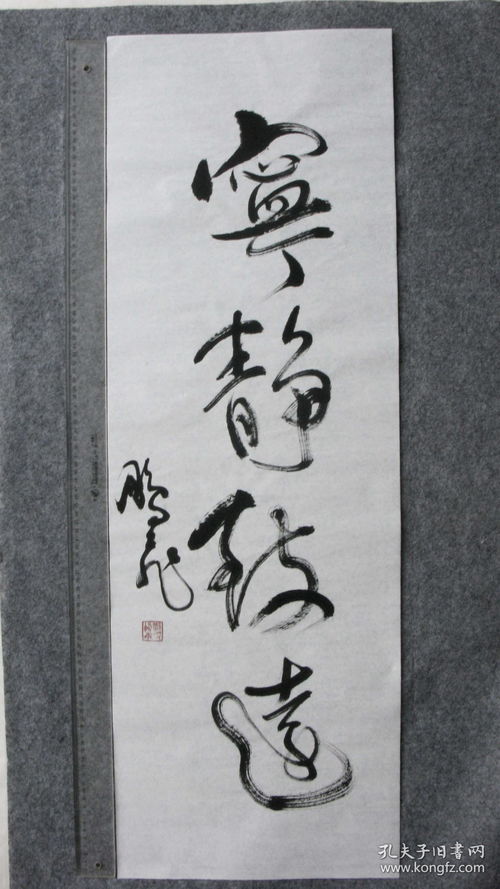 寧靜致遠
鵬飛
孔夫子旧書网
www.kongfz.com